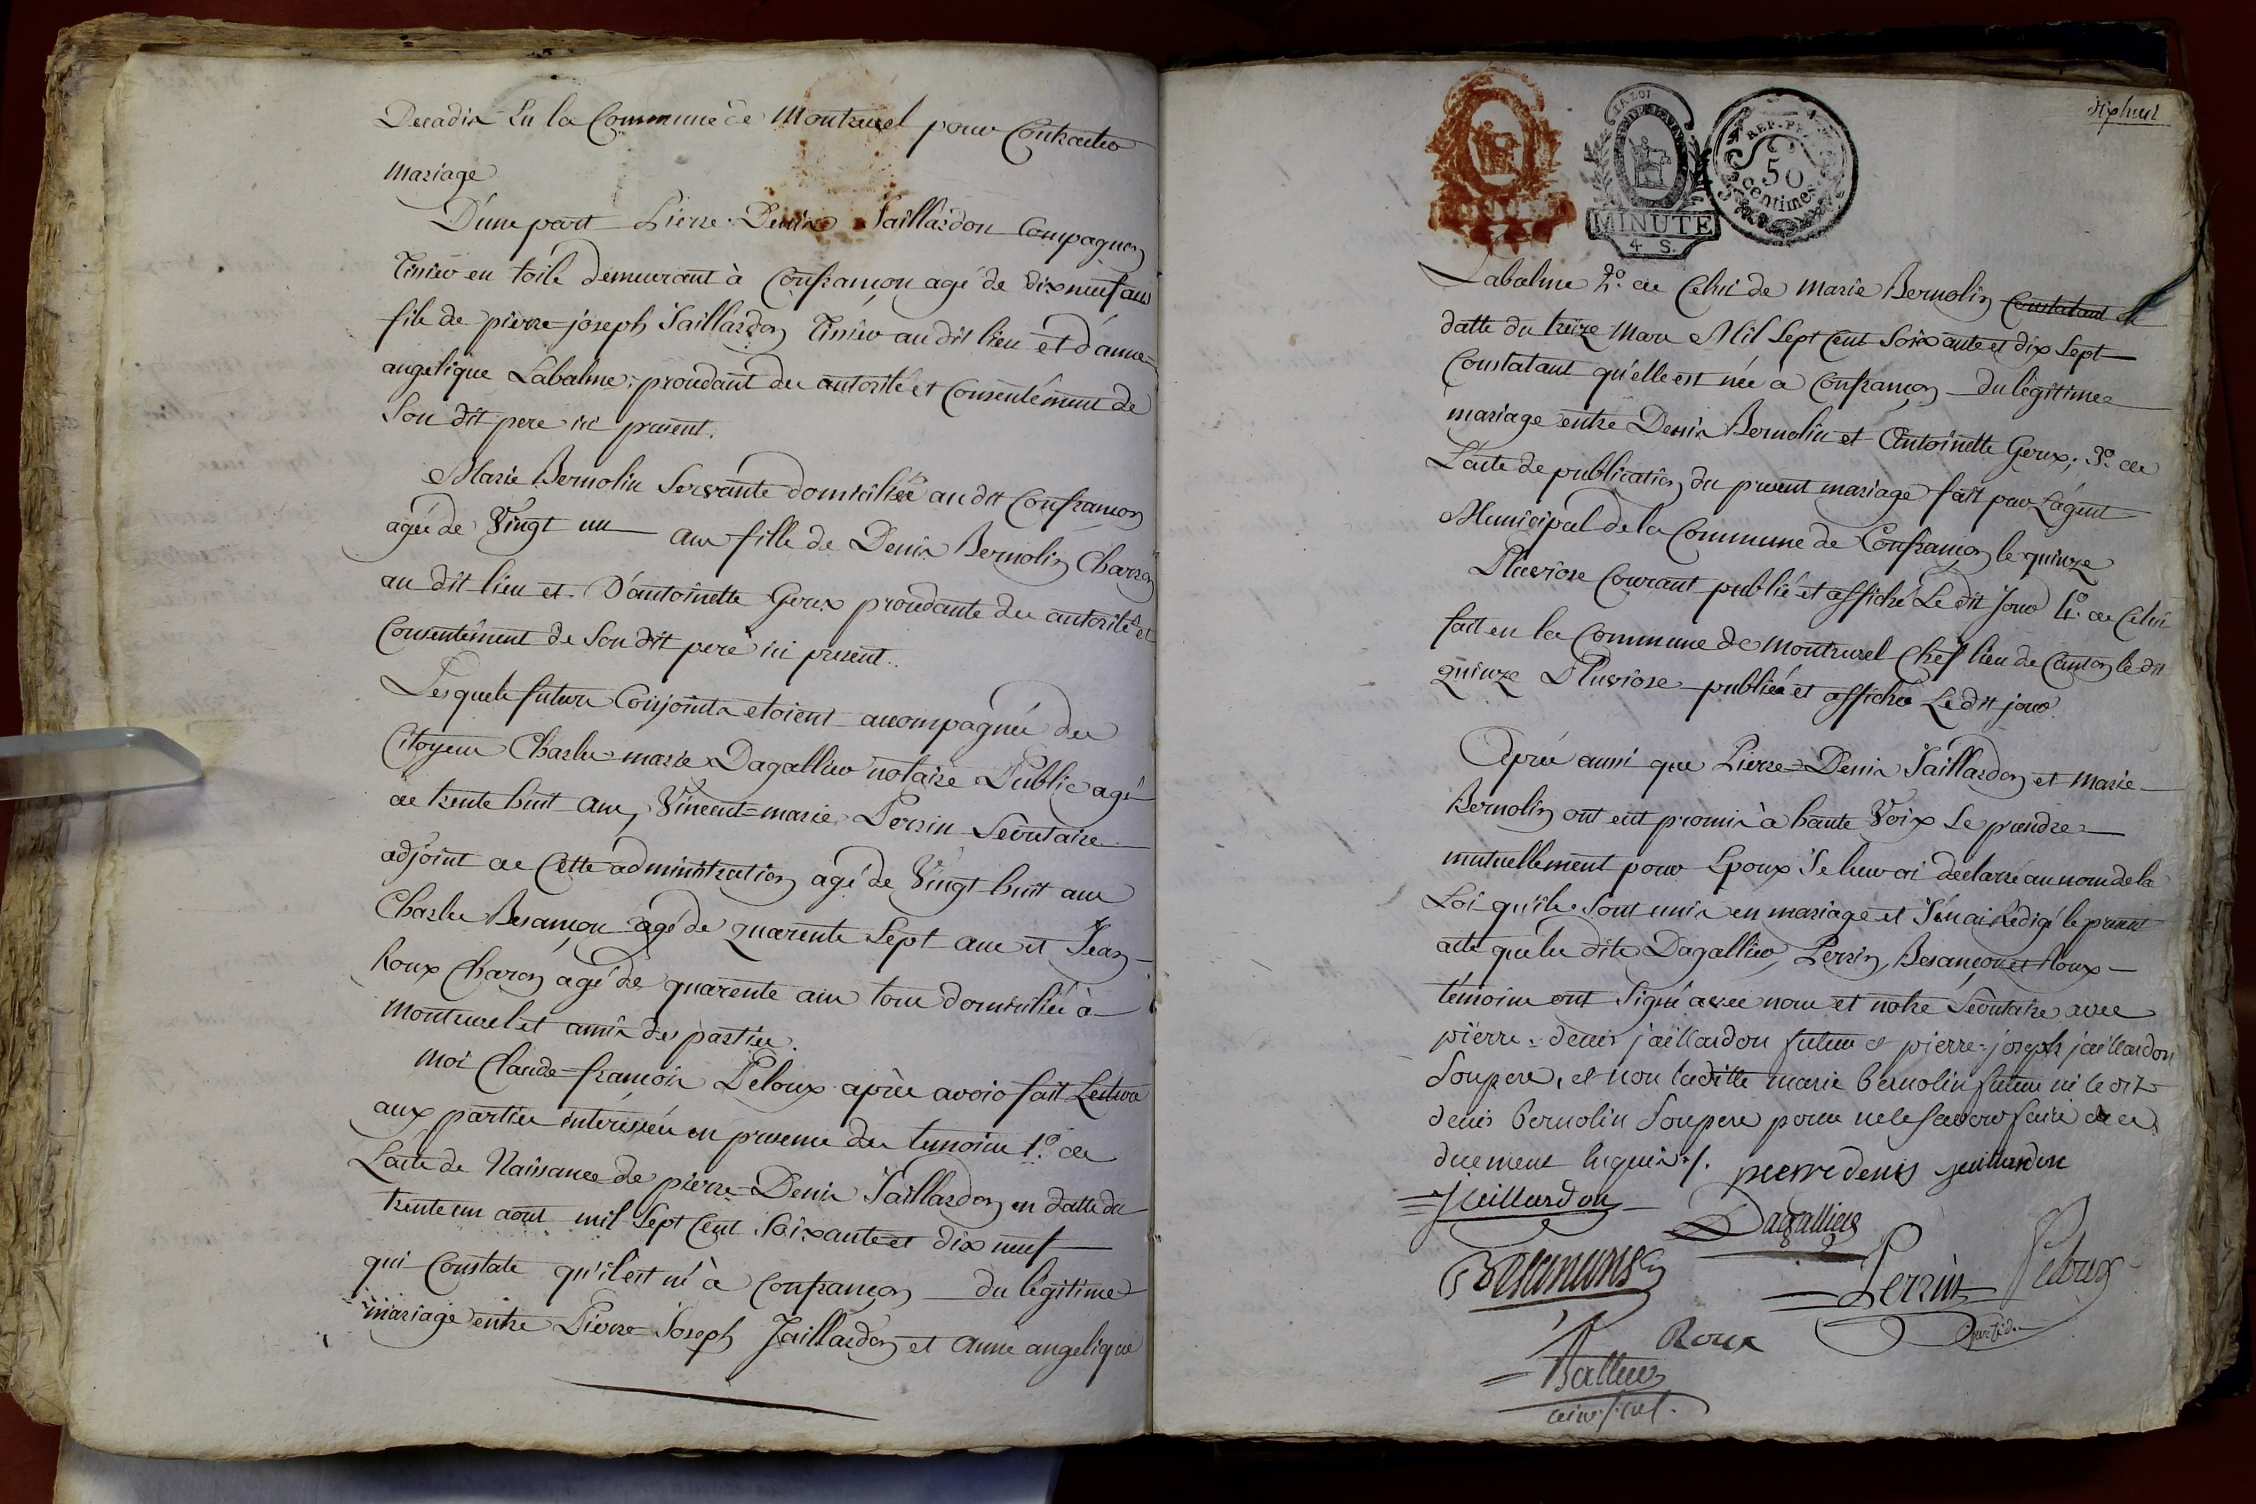 Decadis En la Commune de Montrevel pour Contracter
Mariage
D'une part Pierre-Denis Jaillardon Compagnon
Tissier en toile demeurant à Confrançon agé de dix neuf ans
fils de pierre-joseph Jaillardon Tissier au dit lieu et d'anne-
angelique Labalme; procedant des autorité et Consentêment de
Son dit pere ici present.
Marie Bernolin Servante domiciliée au dit Confrançon
agée de Vingt un ans fille de Denis Bernolin Charron
au dit lieu et D'antoinette Geux procedante des autorité et
Consentêment de Son dit pere ici present.
Lesquels futurs Conjoints etoient accompagnés des
Citoyens Charles-marie Dagallier notaire Public agé
de trente huit ans, Vincent=marie Perrin Secretaire
adjoint de Cette administration agé de Vingt huit ans
Charles Besançon agé de quarente Sept ans et Jean-
Roux Charon agé de quarente ans tous domiciliés à
Montrevel et amis des parties.
Moi Claude=françois Peloux après avoir fait Lecture
aux parties intéressées en presence des temoins 1.° de
L'acte de Naissance de pierre-Denis Jaillardon en datte du
trente un aout mil Sept Cent Soixante et dix neuf
qui Constate qu'il est né à Confrançon du légitime
mariage entre Pierre-Joseph Jaillardon et Anne angelique
dixhuit
LA LOI
MINUTE
4 S.
REP. FRA
50
centimes
Labalme 2.° de Celui de Marie Bernolin Constatant en
datte du treize Mars Mil Sept Cent Soixante et dix Sept
Constatant qu'elle est née à Confrançon du légitime
mariage entre Denis Bernolin et Antoinette Geux; 3.° de
L'acte de publication du present mariage fait par L'agent
Municipal de la Commune de Confrançon le quinze
Pluviose Courant publié et affiché Le dit Jour 4.° de Celui
fait en la Commune de Montrevel Chef lieu de Canton le dit
quinze Pluviose publiée et affichée Le dit jour.
Après aussi que Pierre-Denis Jaillardon et Marie
Bernolin ont eut promis à haute Voix Se prendre
mutuellement pour Epoux Je leur ai declaré au nom de la
Loi qu'ils Sont unis en mariage et J'en ai Rédigé le present
acte que les dits Dagallier, Perrin, Besançon et Roux
témoins ont Signé avec nous et notre Secretaire avec
pierre-denis jaillardon futur et pierre-joseph jaillardon
Son pere, et non ladite marie bernolin future ni le dit
denis bernolin Son pere pour ne le Savoir faire de ce
duement Requis ./. pierre denis jaillardon
Jaillardon
Dagallier
Besançon
Perrin
Peloux
Roux